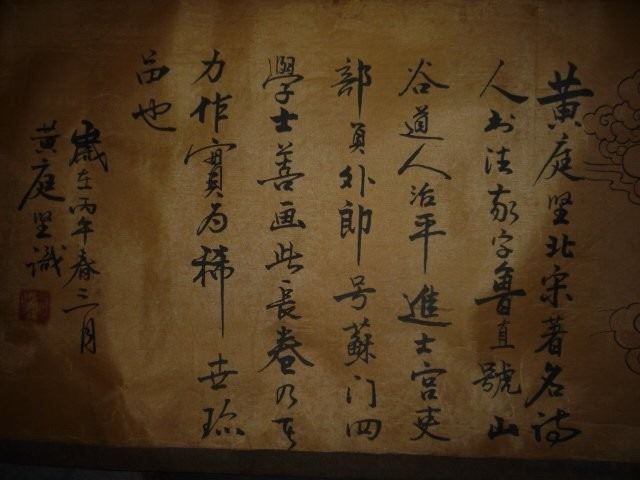 黄庭坚北宋著名诗
人书法家字魯直號山
谷道人治平進士官吏
部員外郎号蘇门四
學士善画此長卷乃其
力作實为稀世珍
品也
歲在丙午春三月
黄庭坚識